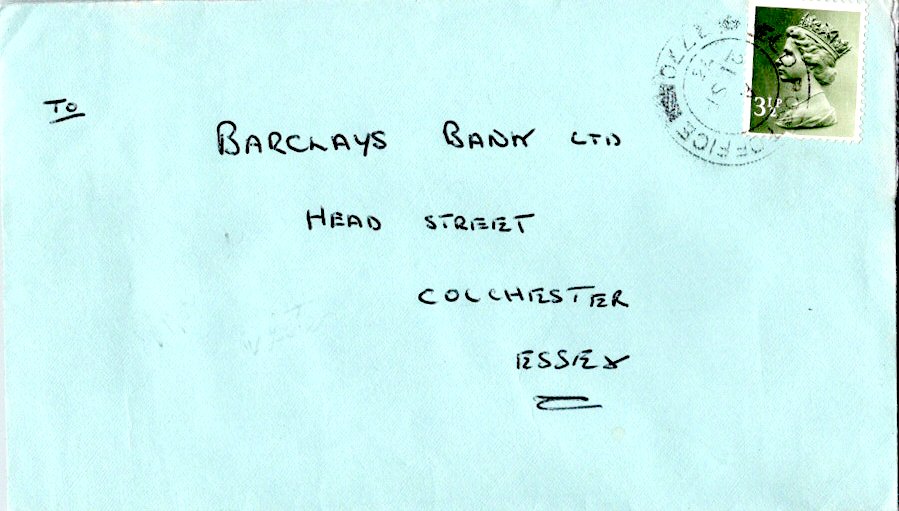 To
BARCLAYS BANK LTD
HEAD STREET
COLCHESTER
ESSEX
3½P
OFFICE